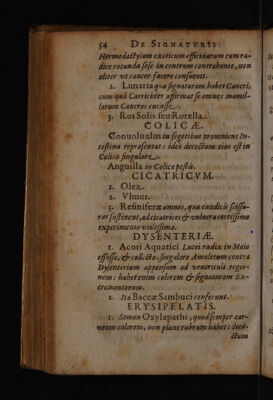 54 DE SIGNATVRIS
Hermodactylum exoticum officinarum cum ra-
dice rotunda sese in centrum contrahente, non
aliter vt cancer facere consueuit.
2. Lunaria quæ signaturam habet Cancri,
cum qua Carrichter affirmat se omnes mamil-
larum Cancros curasse.
3. Ros Solis seu Rorella.
COLICÆ.
Conuoluulus in segetibus proueniens In-
testina repræsentat: ideo decoctum eius est in
Colica singulare.
Anguilla in Colica pestis.
CICATRICVM.
1. Olea.
2. Vlmus.
3. Resiniferæ omnes, quæ caudicis scissu-
ras sustinent, ad cicatrices & vulnera certissimo
experimento vtilissimæ.
DYSENTERIÆ.
1. Acori Aquatici Lutei radix in Maio
effossa, & collecta, singulare Amuletum contra
Dysenteriam appensum ad ventriculi regio-
nem: habet enim colorem & signaturam Ex-
crementorum.
2. Ita Baccæ Sambuci conferunt.
ERYSIPELATIS.
1. Semen Oxylapathi, quod semper car-
neum colorem, non planè rubrum habet: deco-
ctum